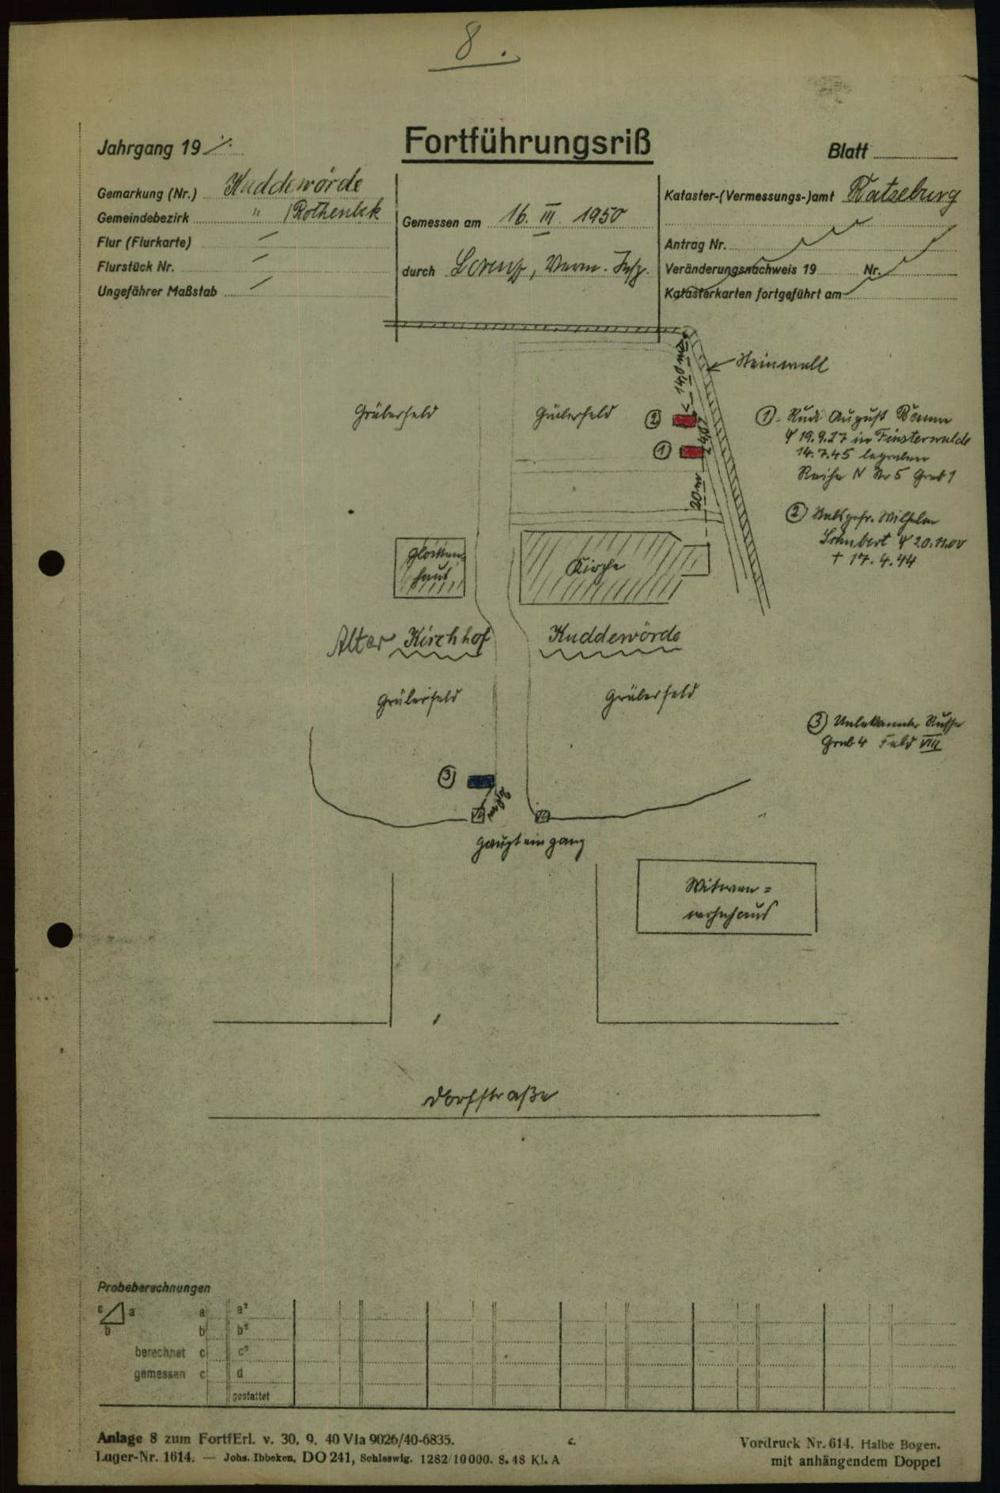 8.
Fortführungsriß
Jahrgang 19
Blatt
Gemarkung (Nr.) Kuddewörde
Gemeindebezirk " / Rothenbek
Flur (Flurkarte)
Flurstück Nr.
Ungefährer Maßstab
Gemessen am 16. III. 1950
durch Lorenz, Verm. Insp.
Kataster-(Vermessungs-)amt Ratzeburg
Antrag Nr.
Veränderungsnachweis 19 Nr.
Katasterkarten fortgeführt am
Steinwall
Gräberfeld
Gräberfeld
14,0 m
2
1
20 m
① Rudi August
19.9.27 in Finsterwalde
14.7.45 begraben
Reihe N Nr 5 Grab 1
② Stabsgefr. Wilhelm
Schubert 20. Nov
† 17.4.44
Glocken
haus
Kirche
Alter Kirchhof Kuddewörde
Gräberfeld
Gräberfeld
③ Unbekannter Russe
Grab 4 Feld VIII
3
Haupteingang
Witwen=
wohnhaus
Dorfstraße
Probeberechnungen
c a
b
a a²
b b²
berechnet c c²
gemessen c d
gestattet
Anlage 8 zum FortfErl. v. 30. 9. 40 VIa 9026/40-6835.
Lager-Nr. 1614. — Johs. Ibbeken, DO 241, Schleswig. 1282/10000. 8. 48 Kl. A
Vordruck Nr. 614. Halbe Bogen.
mit anhängendem Doppel